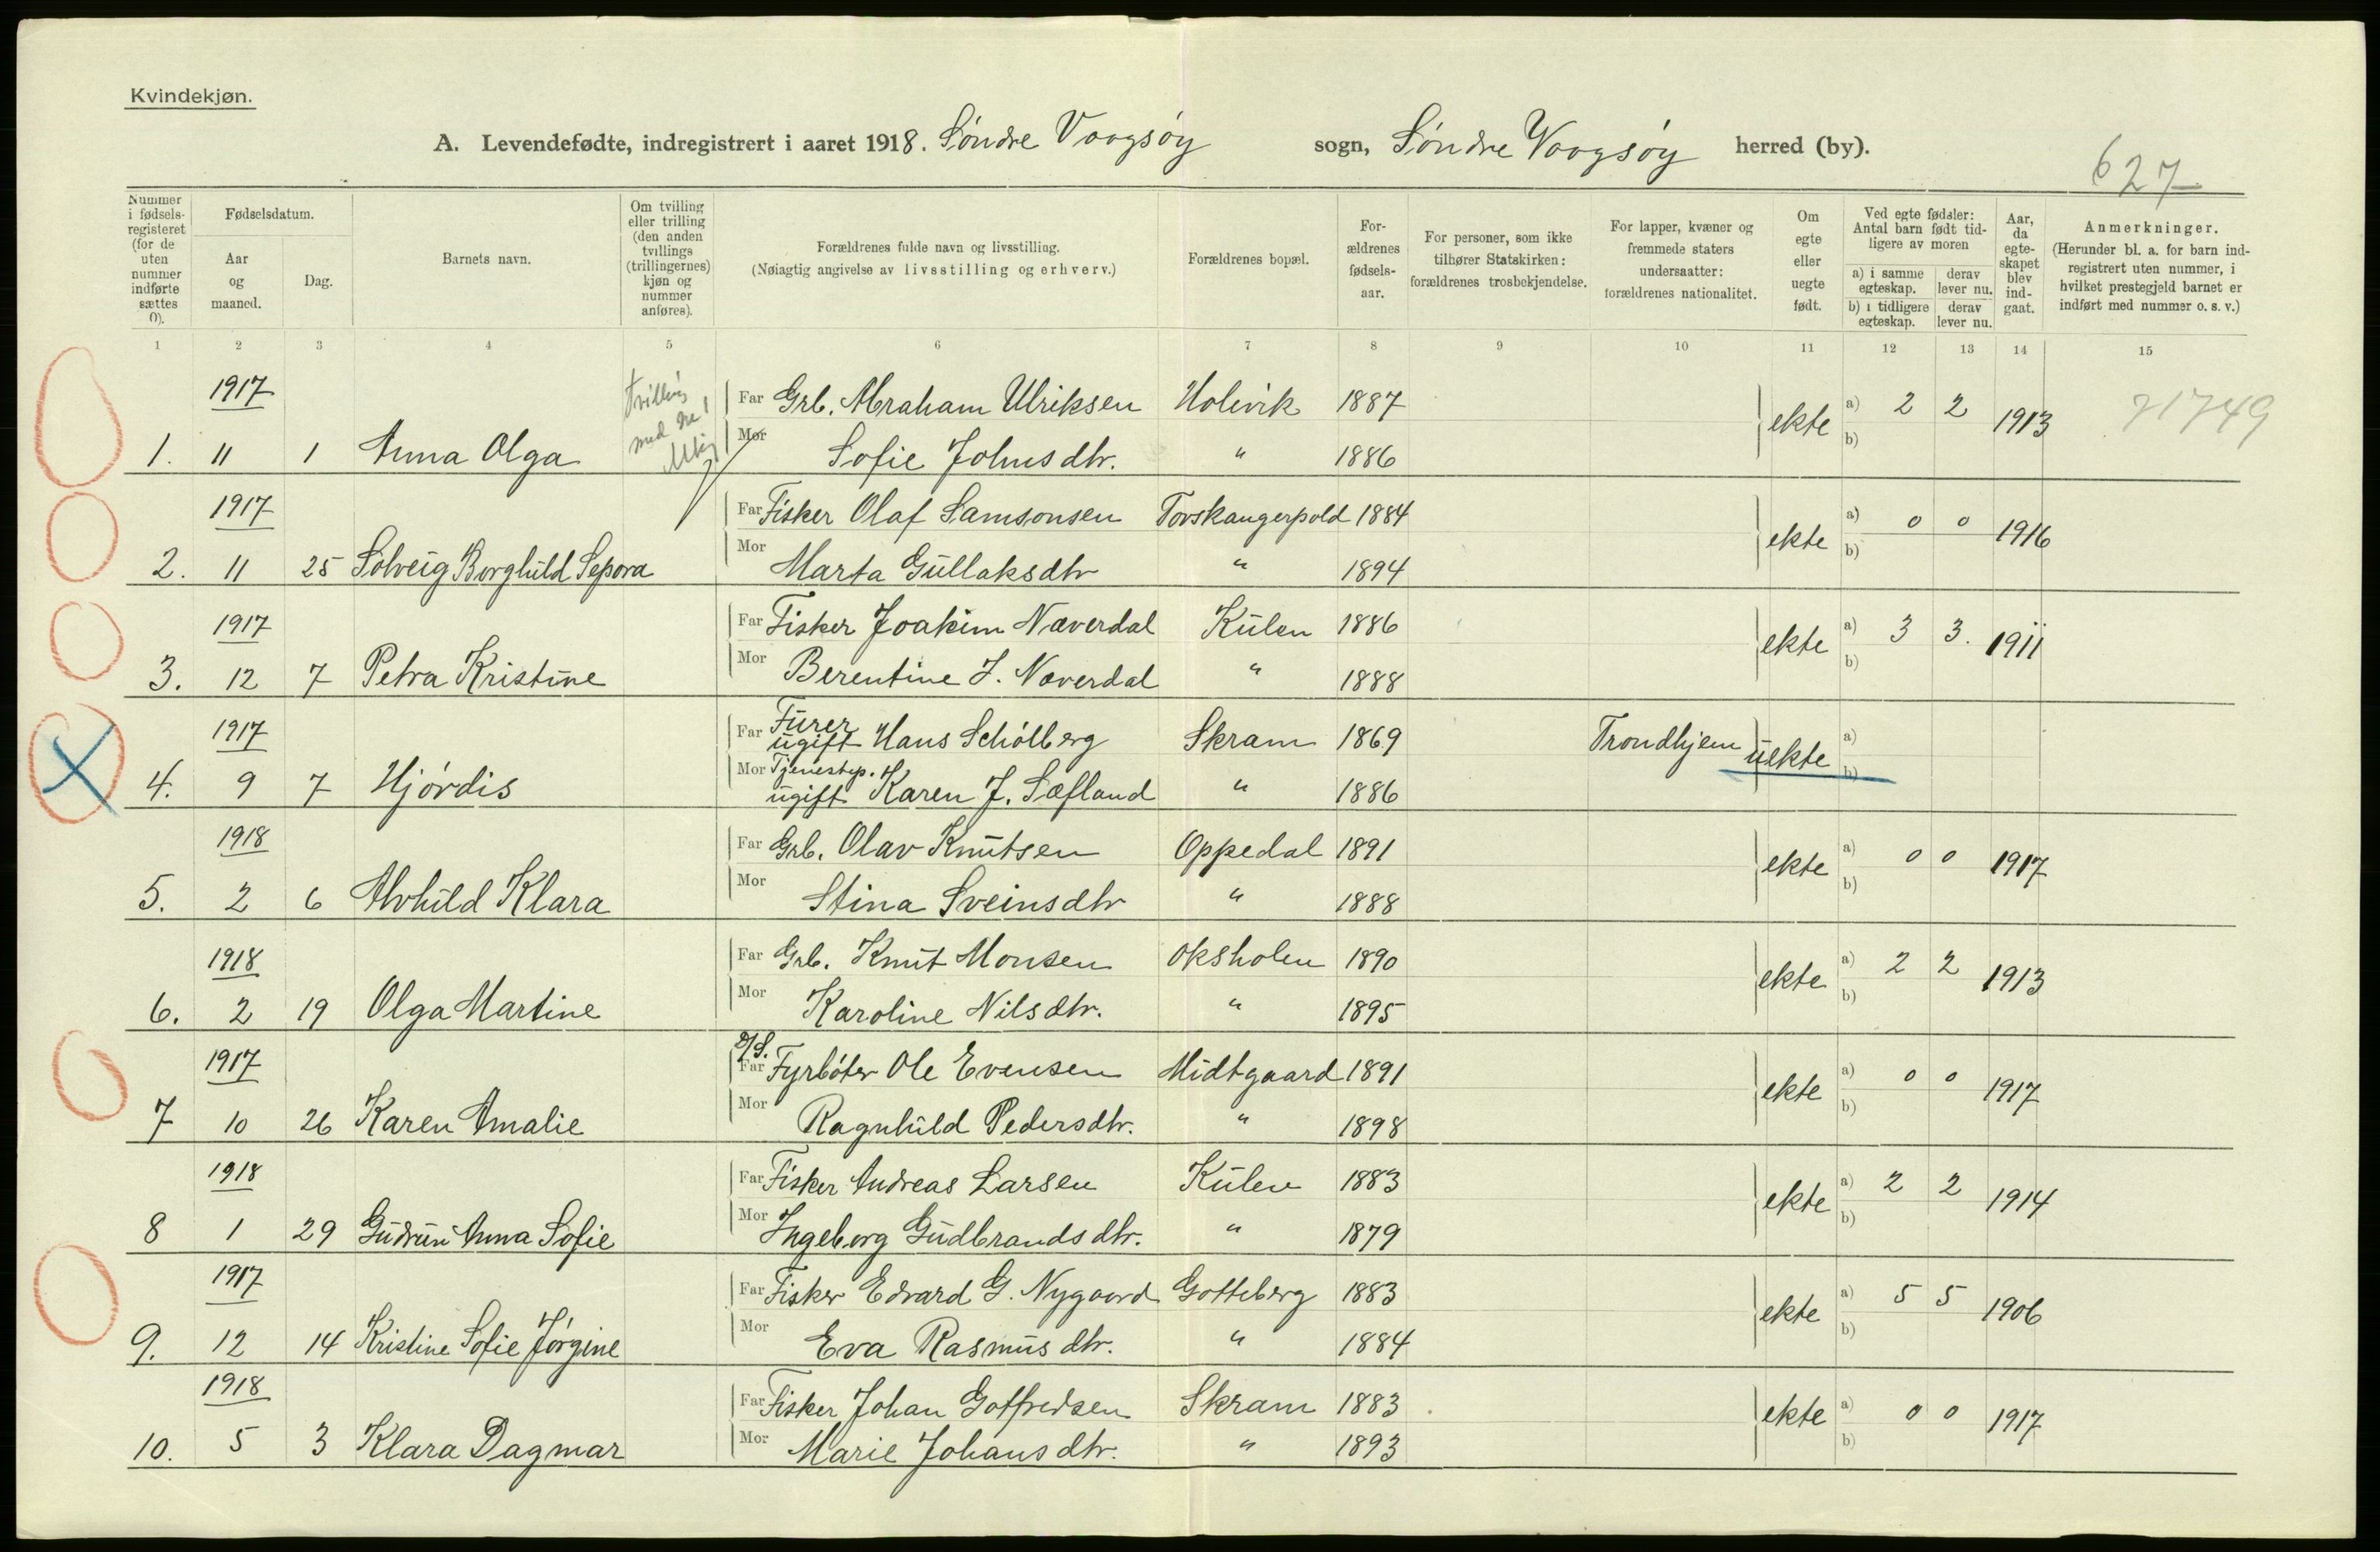 Kvindekjøn.
A. Levendefødte, indregistrert i aaret 1918. Søndre Vaagsøy sogn, Søndre Vaagsøy herred (by).
627
Nummer i fødsels-registeret (for de uten nummer indførte sættes 0).
Fødselsdatum.
Aar og maaned.
Dag.
Barnets navn.
Om tvilling eller trilling (den anden tvillings (trillingernes) kjøn og nummer anføres).
Forældrenes fulde navn og livsstilling.
(Nøiagtig angivelse av livsstilling og erhverv.)
Forældrenes bopæl.
For-ældrenes fødsels-aar.
For personer, som ikke tilhører Statskirken: forældrenes trosbekjendelse.
For lapper, kvæner og fremmede staters undersaatter: forældrenes nationalitet.
Om egte eller uegte født.
Ved egte fødsler: Antal barn født tid-ligere av moren
a) i samme egteskap.
derav lever nu.
b) i tidligere egteskap.
derav lever nu.
Aar, da egte-skapet blev ind-gaat.
Anmerkninger.
(Herunder bl. a. for barn ind-registrert uten nummer, i hvilket prestegjeld barnet er indført med nummer o. s. v.)
1 2 3 4 5 6 7 8 9 10 11 12 13 14 15
1917 Far Grb. Abraham Ulriksen Holevik 1887 ekte a) 2 2 1913
1. 11 1 Anna Olga Mor Sofie Johnsdtr. " 1886 b)
1917 Far Fisker Olaf Samsonsen Torskangerpold 1884 ekte a) 0 0 1916
2. 11 25 Solveig Borghild Sepora Mor Marta Gullaksdtr " 1894 b)
1917 Far Fisker Joakim Næverdal Kulen 1886 ekte a) 3 3. 1911
3. 12 7 Petra Kristine Mor Berentine J. Næverdal " 1888 b)
1917 Far Furer ugift Hans Schölberg Skram 1869 Trondhjem uekte a)
4. 9 7 Hjørdis Mor Tjenestep. ugift Karen J. Sæfland " 1886 b)
1918 Far Grb. Olav Knutsen Oppedal 1891 ekte a) 0 0 1917
5. 2 6 Alvhild Klara Mor Stina Sveinsdtr " 1888 b)
1918 Far Grb. Knut Monsen Oksholen 1890 ekte a) 2 2 1913
6. 2 19 Olga Martine Mor Karoline Nilsdtr. " 1895 b)
1917 Far Fyrbøter Ole Evensen Midtgaard 1891 ekte a) 0 0 1917
7 10 26 Karen Amalie Mor Ragnhild Pedersdtr. " 1898 b)
1918 Far Fisker Andreas Larsen Kulen 1883 ekte a) 2 2 1914
8 1 29 Gudrun Anna Sofie Mor Ingeborg Gudbrandsdtr. " 1879 b)
1917 Far Fisker Edvard G. Nygaard Gotteberg 1883 ekte a) 5 5 1906
9. 12 14 Kristine Sofie Jørgine Mor Eva Rasmusdtr. " 1884 b)
1918 Far Fisker Johan Gotfredsen Skram 1883 ekte a) 0 0 1917
10. 5 3 Klara Dagmar Mor Marie Johansdtr. " 1893 b)